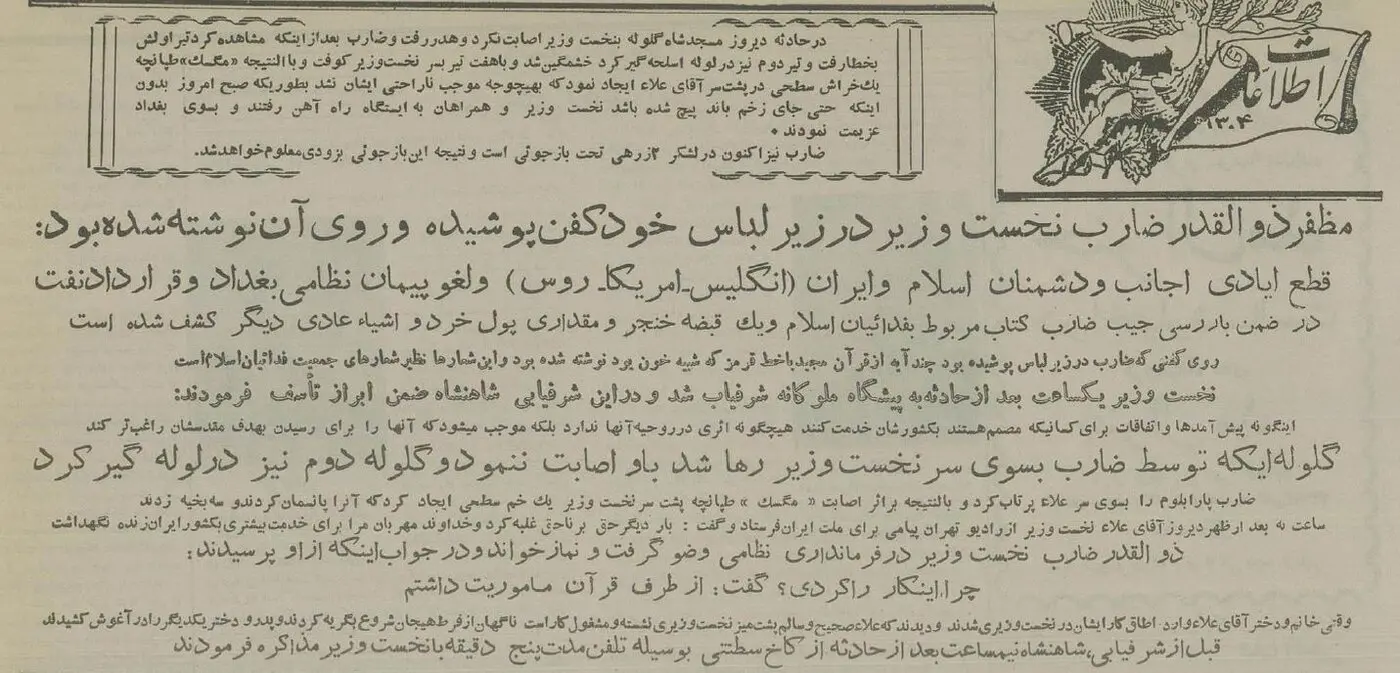 اطلاعات
۱۳۰۴
در حادثه دیروز مسجد شاه گلوله بنخست وزیر اصابت نکرد و هدر رفت و ضارب بعد از اینکه مشاهده کرد تیر اولش
بخطا رفت و تیر دوم نیز در لوله اسلحه گیر کرد خشمگین شد و با هفت تیر بسر نخست وزیر کوفت و با النتیجه «مگسک» طپانچه
یك خراش سطحی در پشت سر آقای علاء ایجاد نمود که بهیچوجه موجب ناراحتی ایشان نشد بطوریکه صبح امروز بدون
اینکه حتی جای زخم باند پیچ شده باشد نخست وزیر و همراهان به ایستگاه راه آهن رفتند و بسوی بغداد
عزیمت نمودند.
ضارب نیز اکنون در لشکر ۲ زرهی تحت بازجوئی است و نتیجه این بازجوئی بزودی معلوم خواهد شد.
مظفر ذوالقدر ضارب نخست وزیر در زیر لباس خود کفن پوشیده و روی آن نوشته شده بود:
قطع ایادی اجانب و دشمنان اسلام و ایران (انگلیس ـ امریکا ـ روس) و لغو پیمان نظامی بغداد و قرارداد نفت
در ضمن بازرسی جیب ضارب کتاب مربوط بفدائیان اسلام و یك قبضه خنجر و مقداری پول خرد و اشیاء عادی دیگر کشف شده است
روی کفنی که ضارب در زیر لباس پوشیده بود چند آیه از قرآن مجید با خط قرمز که شبیه خون بود نوشته شده بود و این شعارها نظیر شعارهای جمعیت فدائیان اسلام است
نخست وزیر یکساعت بعد از حادثه به پیشگاه ملوکانه شرفیاب شد و در این شرفیابی شاهنشاه ضمن ابراز تأسف فرمودند:
اینگونه پیش آمدها و اتفاقات برای کسانیکه مصمم هستند بکشورشان خدمت کنند هیچگونه اثری در روحیه آنها ندارد بلکه موجب میشود که آنها را برای رسیدن بهدف مقدسشان راغب تر کند
گلوله ایکه توسط ضارب بسوی سر نخست وزیر رها شد باو اصابت ننمود و گلوله دوم نیز در لوله گیر کرد
ضارب پارابلوم را بسوی سر علاء پرتاب کرد و بالنتیجه براثر اصابت «مگسك» طپانچه پشت سر نخست وزیر یك خم سطحی ایجاد کرد که آنرا پانسمان کردند و سه بخیه زدند
ساعت نه بعد از ظهر دیروز آقای علاء نخست وزیر از رادیو تهران پیامی برای ملت ایران فرستاد و گفت : بار دیگر حق بر ناحق غلبه کرد و خداوند مهربان مرا برای خدمت بیشتری بکشور ایران زنده نگهداشت
ذوالقدر ضارب نخست وزیر در فرمانداری نظامی وضو گرفت و نماز خواند و در جواب اینکه از او پرسیدند:
چرا اینکار را کردی؟ گفت: از طرف قرآن ماموریت داشتم
وقتی خانم و دختر آقای علاء وارد اطاق کار ایشان در نخست وزیری شدند و دیدند که علاء صحیح و سالم پشت میز نخست وزیری نشسته و مشغول کار است ناگهان از فرط هیجان شروع بگریه کردند و پدر و دختر یکدیگر را در آغوش کشیدند
قبل از شرفیابی، شاهنشاه نیمساعت بعد از حادثه از کاخ سلطنتی بوسیله تلفن مدت پنج دقیقه با نخست وزیر مذاکره فرمودند